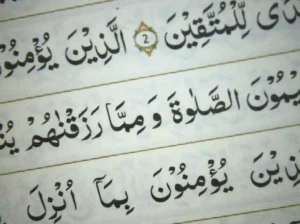 دَى لِّلْمُتَّقِيْنَ ۝2 الَّذِيْنَ يُؤْمِنُوْ
يْمُوْنَ الصَّلٰوةَ وَمِمَّا رَزَقْنٰهُمْ يُنْ
ذِيْنَ يُؤْمِنُوْنَ بِمَآ اُنْزِلَ